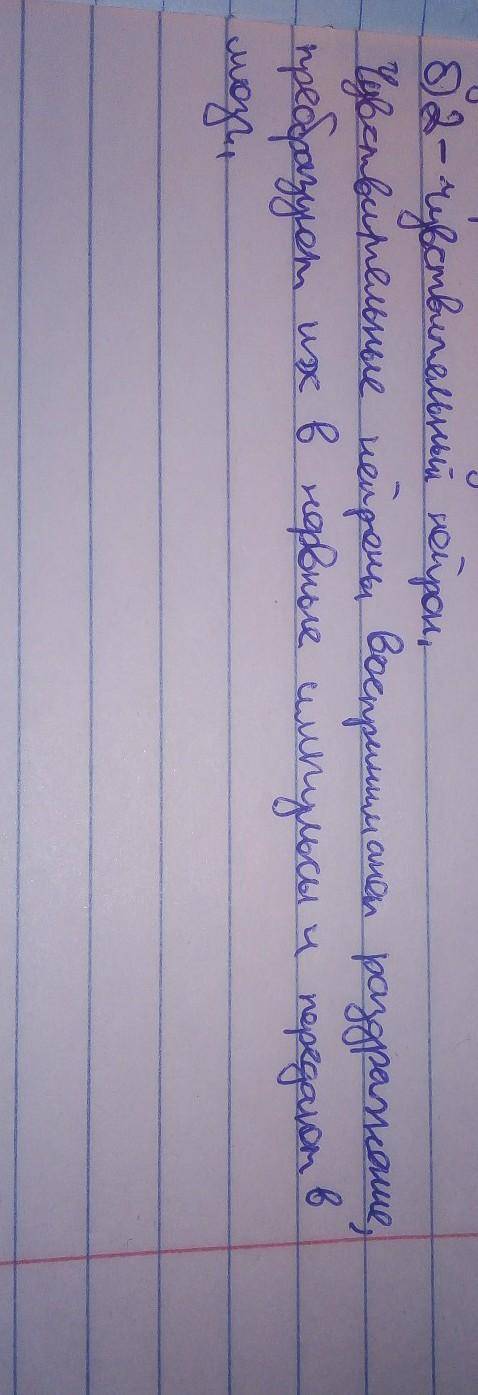 б) 2 - чувствительный нейрон,
Чувствительные нейроны воспринимает раздражение,
преобразует их в нервные импульсы и передают в
мозг,,